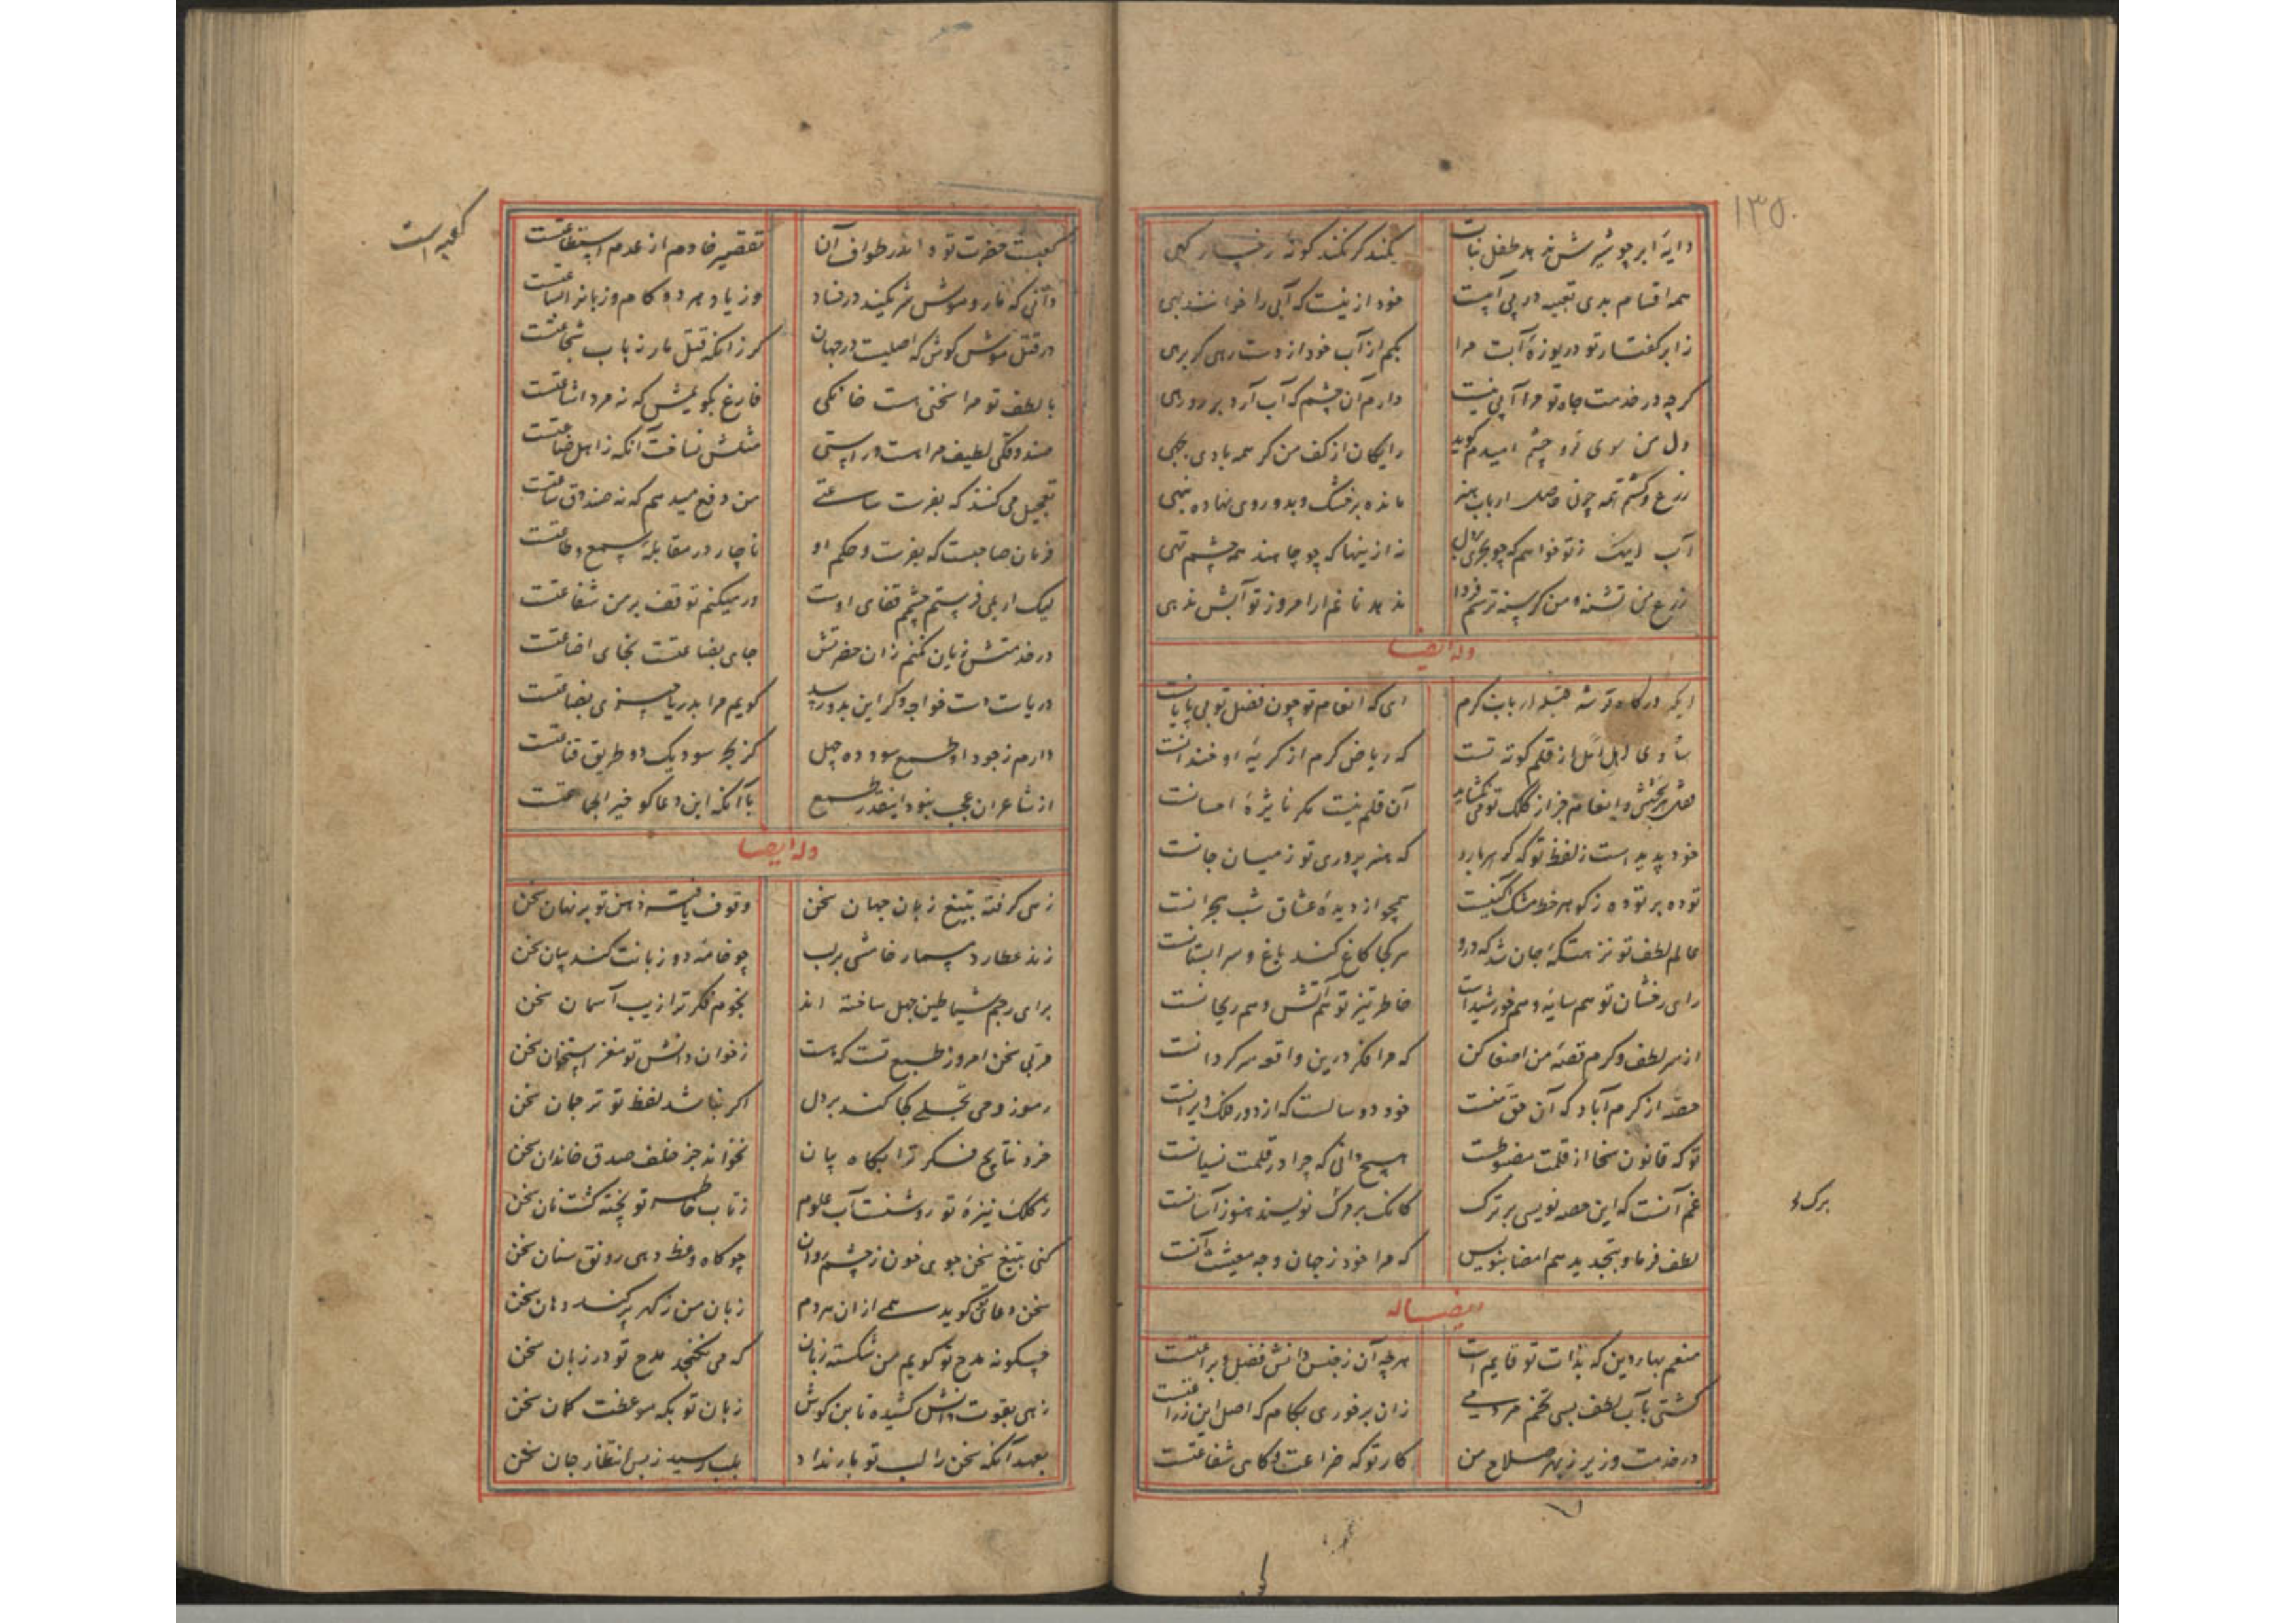 ۱۳۵
دایهٔ ابر چو شیرش ندهد طفل نبات
نکند گر نکند گونه رخسار کهی
همه اقسام بدی تعبیه در بی آبیست
خود ازینست که آبی را خوانند بهی
ز ابر گفتار تو دریوزهٔ آبست مرا
بکم از آب خود از دست رهی گر برهی
گرچه در خدمت جاه تو مرا آبی نیست
دارم آن چشم که آب آرد بر روی رهی
دل من سوی تو و چشم امیدم گوید
رایگان از کف من گر همه بادی بجهی
زرع و کشتم همه چون حاصل ارباب هنر
مانده بر خشک و بدو روی نهاده تبهی
آب اینک ز تو خواهم که چو بحری
نه ازینها که چو چاهند همه چشم تهی
زرع من تشنه و من گرسنه ترسم فردا
ندهد نانم ار امروز تو آبش ندهی
وله ایضا
ایکه درگاه تو شد قبلهٔ ارباب کرم
ای که انعام تو چون فضل تو بی پایانست
که ریاض کرم از گریهٔ او خندانست
بخشش و انعام جز از کلک تو می نگشاید
آن قلم نیست مگر نایژهٔ احسانست
خود پدید است ز لفظ تو که گوهر بارد
که هنرپروری تو ز میان جانست
توده بر توده ز گوهر خط مشک آگینت
همچو از دیدهٔ عشاق شب هجرانست
عالم لطف تو نزهتگه جان شد که درو
هر کجا کاغ کند باغ و سرابستانست
رای رخشان تو هم سایه و هم خورشید است
خاطر تیز تو هم آتش و هم ریحانست
از سر لطف و کرم قصهٔ من اصغا کن
که مرا فکر درین واقعه سرگردانست
حصه از کرم آباد که آن حق منست
خود دو سالست که از دور فلک ویرانست
تو که قانون سخا از قلمت مضبوطست
هیچ دانی که چرا در قلمت نسیانست
غم آنست که این حصه نویسی بر ترک
کانک بر مرگ نویسند هنوز آسانست
لطف فرما و بتجدید هم امضا بنویس
که مرا خود ز جهان وجه معیشت آنست
برک
ایضا له
منعم بهاء دین که بذات تو قایم است
هر چه آن ز جنس دانش و فضل و براعتست
کشتی بآب لطف بسی تخم مردمی
زان برخوری بکام که اصل این زراعتست
در خدمت وزیر ز بهر صلاح من
کار تو که ضراعت و گاهی شفاعتست
کعبه است
کعبست حضرت تو و اندر طواف آن
تقصیر خادم از عدم استطاعتست
دانی که مار و موش شریکند در فساد
وز یاد هر دو کام و زبانرا بشاعتست
در قتل موش کوش که اصلیست در جهان
گر زانکه قتل مار ز باب شجاعتست
با لطف تو مرا سخنی هست خانگی
فارغ بگویمش که نه مرد اشاعتست
صندوقکی لطیف مرا هست و راستی
مثلش نیافت آنکه ز اهل صناعتست
تعجیل می کنند که بفرست ساعتی
من دفع میدهم که نه صندوق ساعتست
فرمان صاحبست که بفرست و حکم او
ناچار در مقابلهٔ سمع و طاعتست
لیک ار بلی فرستم چشم قفای اوست
ور میکنم توقف بر من شفاعتست
در خدمتش زیان نکنم زان حضرتش
جای بضاعتست نجای اضاعتست
دریاست دست خواجه و گر این بدو رسد
گویم مرا بدریا چیزی بضاعتست
دارم ز جود او طمع سود ده چهل
کز بحر سود یک دو طریق قناعتست
از شاعران عجب نبود اینقدر طمع
با آنکه این دعاگو خیر الجماعتست
وله ایضا
زهی گرفته بتیغ زبان جهان سخن
وقوف یافته ذهن تو بر نهان سخن
زند عطارد مسمار خامشی بر لب
چو خامهٔ دو زبانت کند بیان سخن
برای رجم شیاطین جهل ساخته اند
نجوم فکر ترا زیب آسمان سخن
مربی سخن امروز طبع تست که هست
ز خوان دانش تو مغز استخوان سخن
رموز وحی تجلی کجا کند بر دل
اگر نباشد لفظ تو ترجمان سخن
خرد نتایج فکر ترا بگاه بیان
نخواند جز خلف صدق خاندان سخن
ز کلک نیزهٔ تو روشنست آب علوم
ز تاب خاطر تو پخته گشت نان سخن
کنی بتیغ سخن جوی خون ز چشم روان
چو گاه وعظ دهی رونق سنان سخن
سخن دعای تو گوید همی از آن هر دم
زبان من ز گهر پر کند دهان سخن
چگونه مدح تو گویم من شکسته زبان
که می نگنجد مدح تو در زبان سخن
زهی بقوت دانش کشیده تا بن گوش
زبان تو بگه موعظت کمان سخن
بعهد آنکه سخن را لب تو بار نداد
بلب رسید ز بس انتظار جان سخن